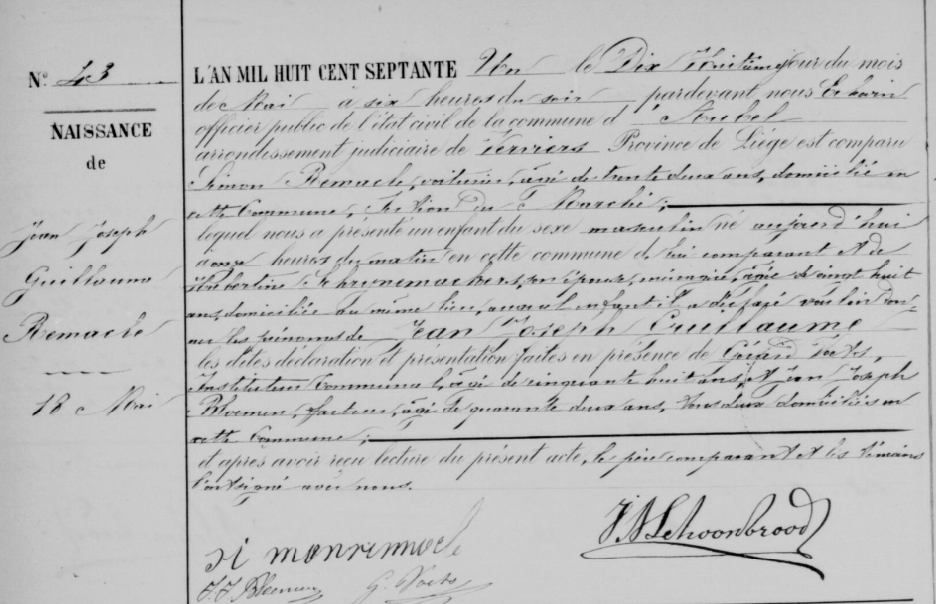 N° 43
NAISSANCE
de
Jean Joseph
Guillaume
Remacle
18 Mai
L'AN MIL HUIT CENT SEPTANTE Un le Dix Huitième jour du mois
de Mai à six heures du soir pardevant nous Echevin
officier public de l'état civil de la commune d'Aubel
arrondissement judiciaire de Verviers Province de Liége est comparu
Simon Remacle, voiturier, âgé de trente deux ans, domicilié en
cette Commune, Section du Marché;
lequel nous a présenté un enfant du sexe masculin né aujourd'hui
onze heures du matin en cette commune de lui comparant et de
Hubertine Schrynemackers, son épouse, ménagère, âgée de vingt huit
ans, domiciliée au même lieu, auquel enfant il a déclaré vouloir don-
ner les prénoms de Jean Joseph Guillaume
les dites déclaration et présentation faites en présence de Gérard Voets,
Instituteur Communal, âgé de cinquante huit ans, et Jean Joseph
Bloemen, facteur, âgé de quarante deux ans, tous deux domiciliés en
cette Commune;
et après avoir reçu lecture du présent acte, le père comparant et les témoins
l'ont signé avec nous.
si mon remacle
J. J. Bloemen G. Voets
Schoonbrood